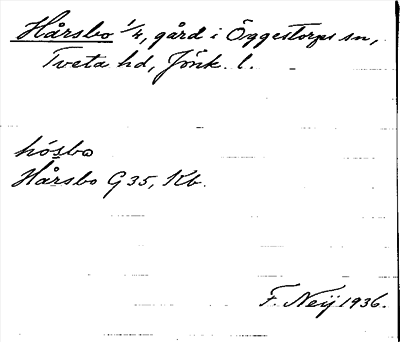 Hårsbo 1/4, gård i Öggestorps sn,
Tveta hd, Jönk. l.
hósbo
Hårsbo G35, Kb.
F. Neij 1936.